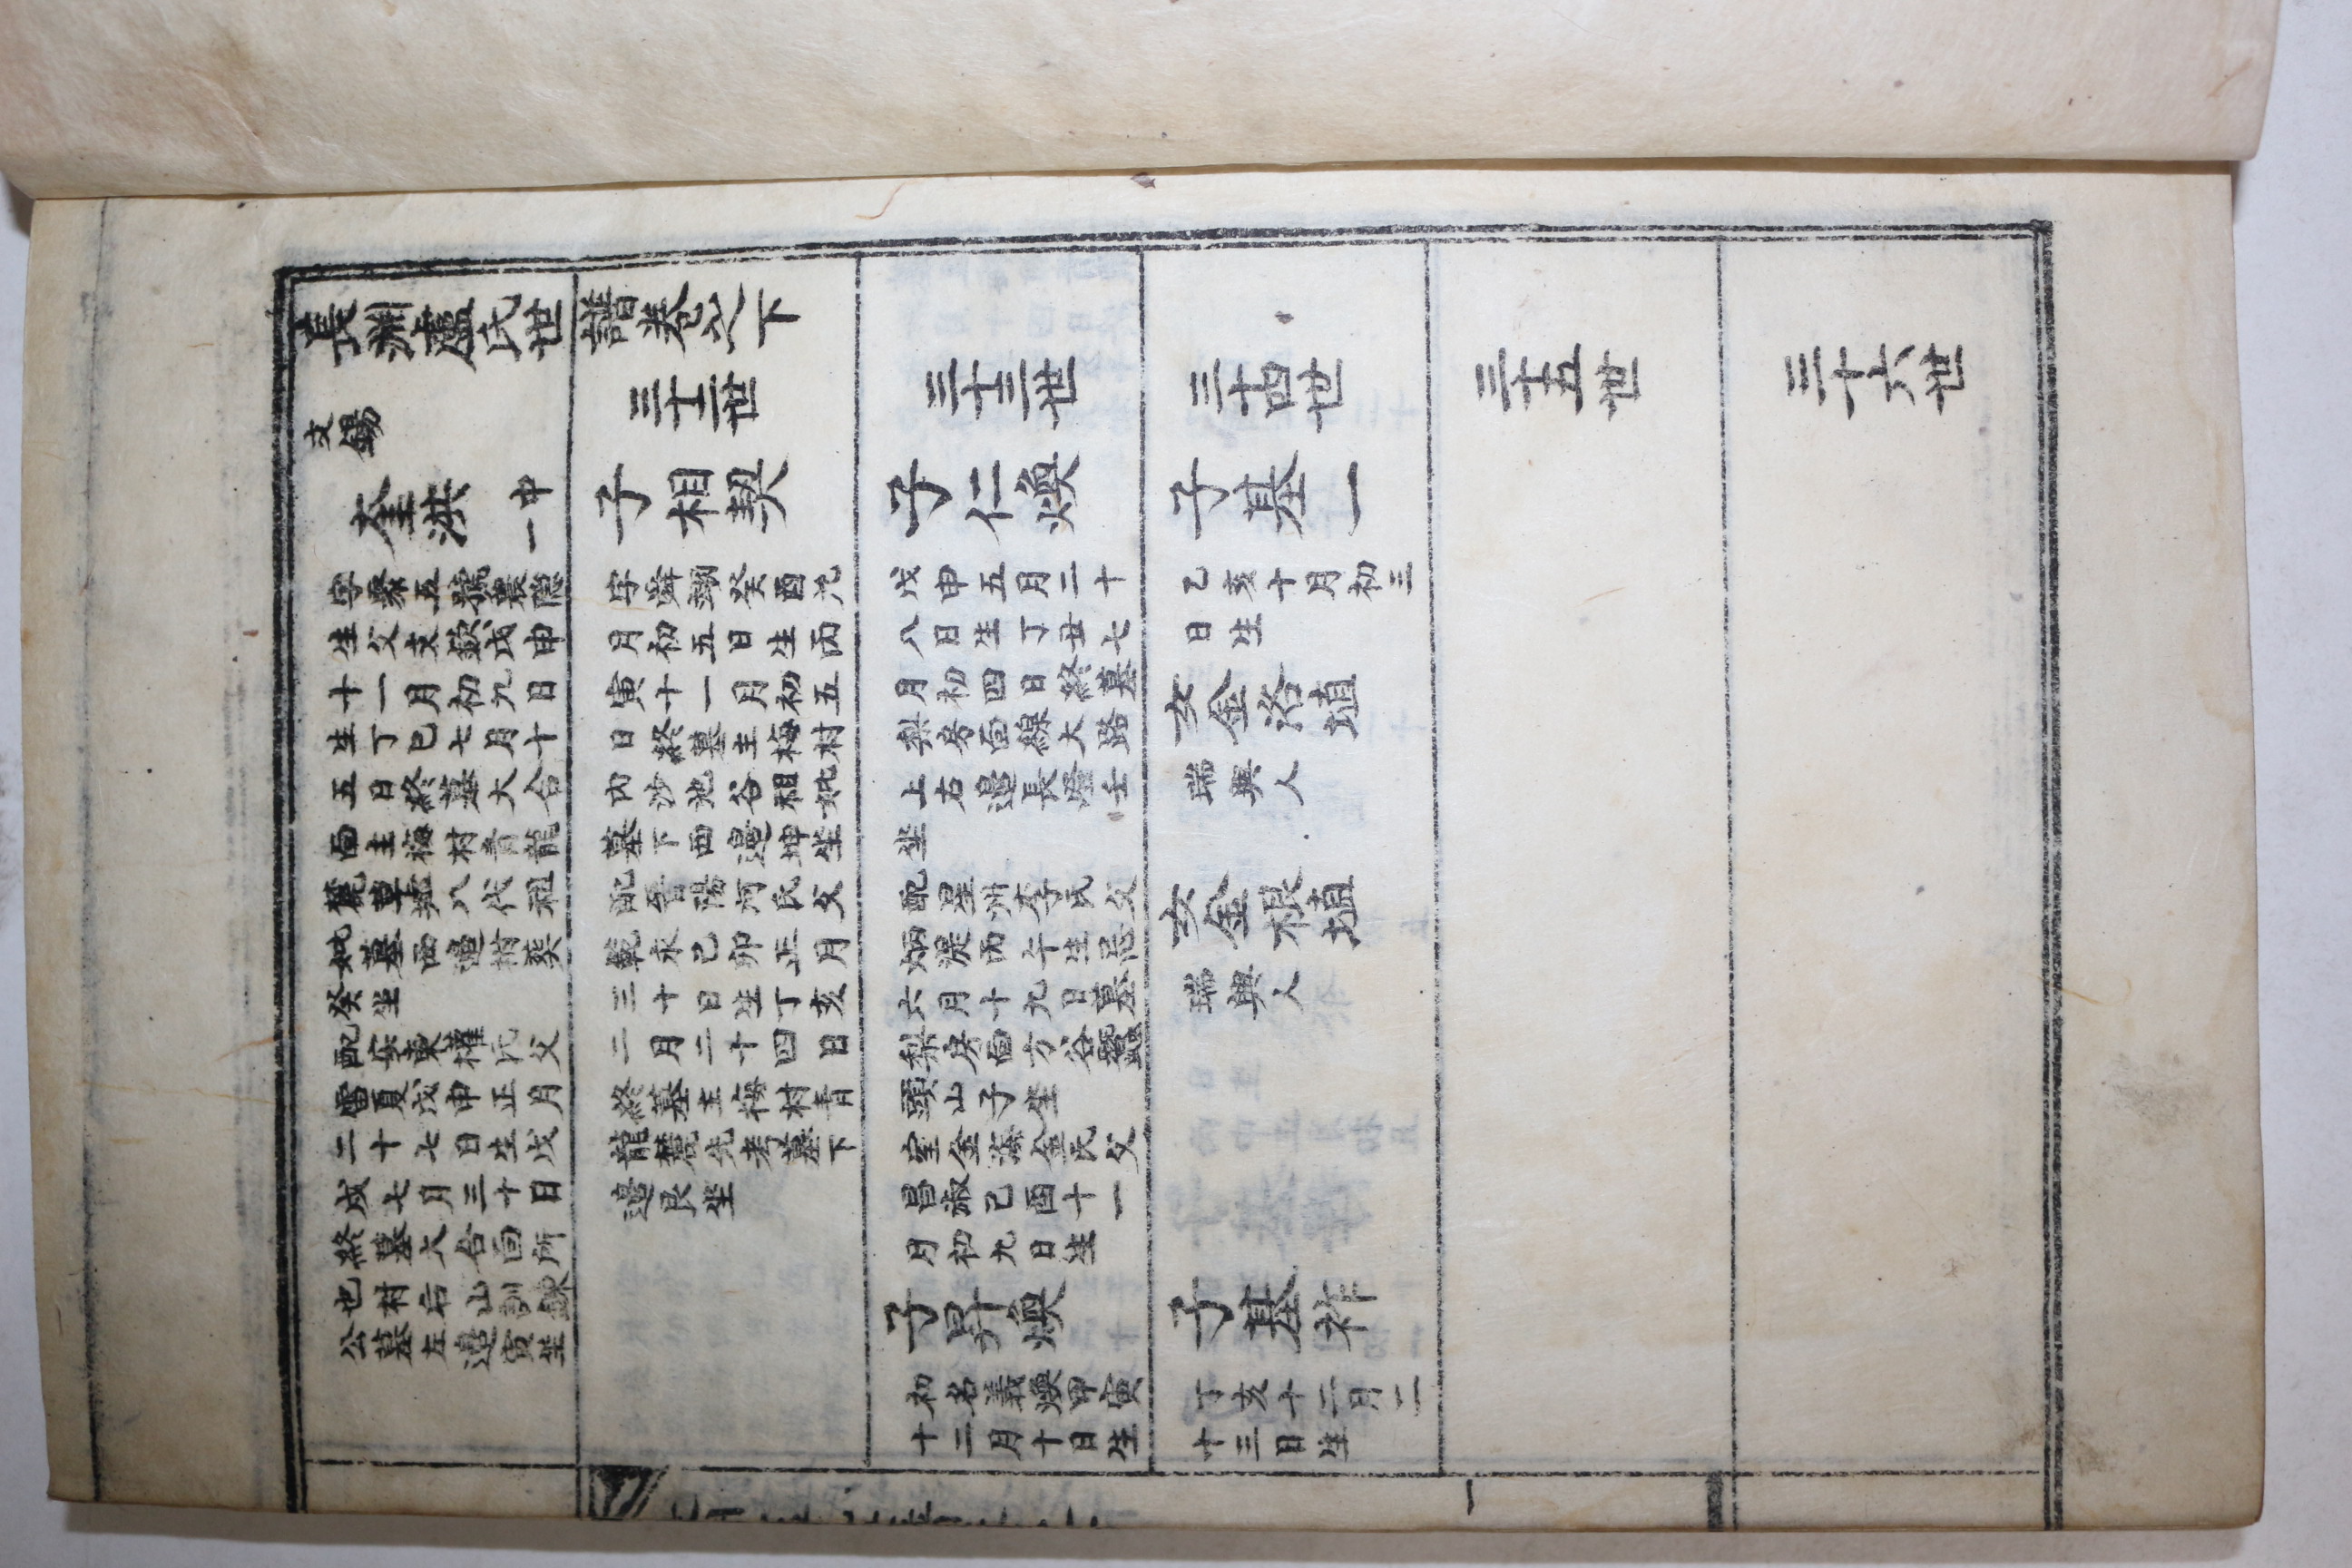 長淵盧氏世譜卷之下
文錫
奎洪 中一
字聚五號農隱
生父支欽戊申
十一月初九日
生丁巳七月十
五日終墓大合
面主梅村青龍
麓草八代祖
妣墓西邊祔葬
癸坐
配安東權氏父
雷夏戊申正月
二十七日生戊
戌七月三十日
終墓大合面所
也村后山訓鍊
公墓左邊寅坐
三十二世
子相契
字舜癸酉九
月初五日生丙
寅十一月初五
日終墓主梅村
內沙池谷祖妣
墓下西邊坤坐
配晋陽河氏父
範永己卯正月
三十日生丁亥
二月二十四日
終墓主梅村青
龍麓先考墓下
邊艮坐
三十三世
子仁煥
戊申五月二十
八日生丁丑七
月初四日終墓
梨房面線大路
上右邊長燈壬
坐
配星州李氏父
炳湜丙午生忌
六月十九日墓
梨房面方谷蠶
頭山子坐
室金海金氏父
昌淑己酉十一
月初九日生
子昇煥
初名義煥甲寅
十二月十日生
三十四世
子基一
乙亥十月初三
日生
女金洛植
瑞興人
女金根植
瑞興人
子基祚
丁亥十二月二
十三日生
三十五世
三十六世
一